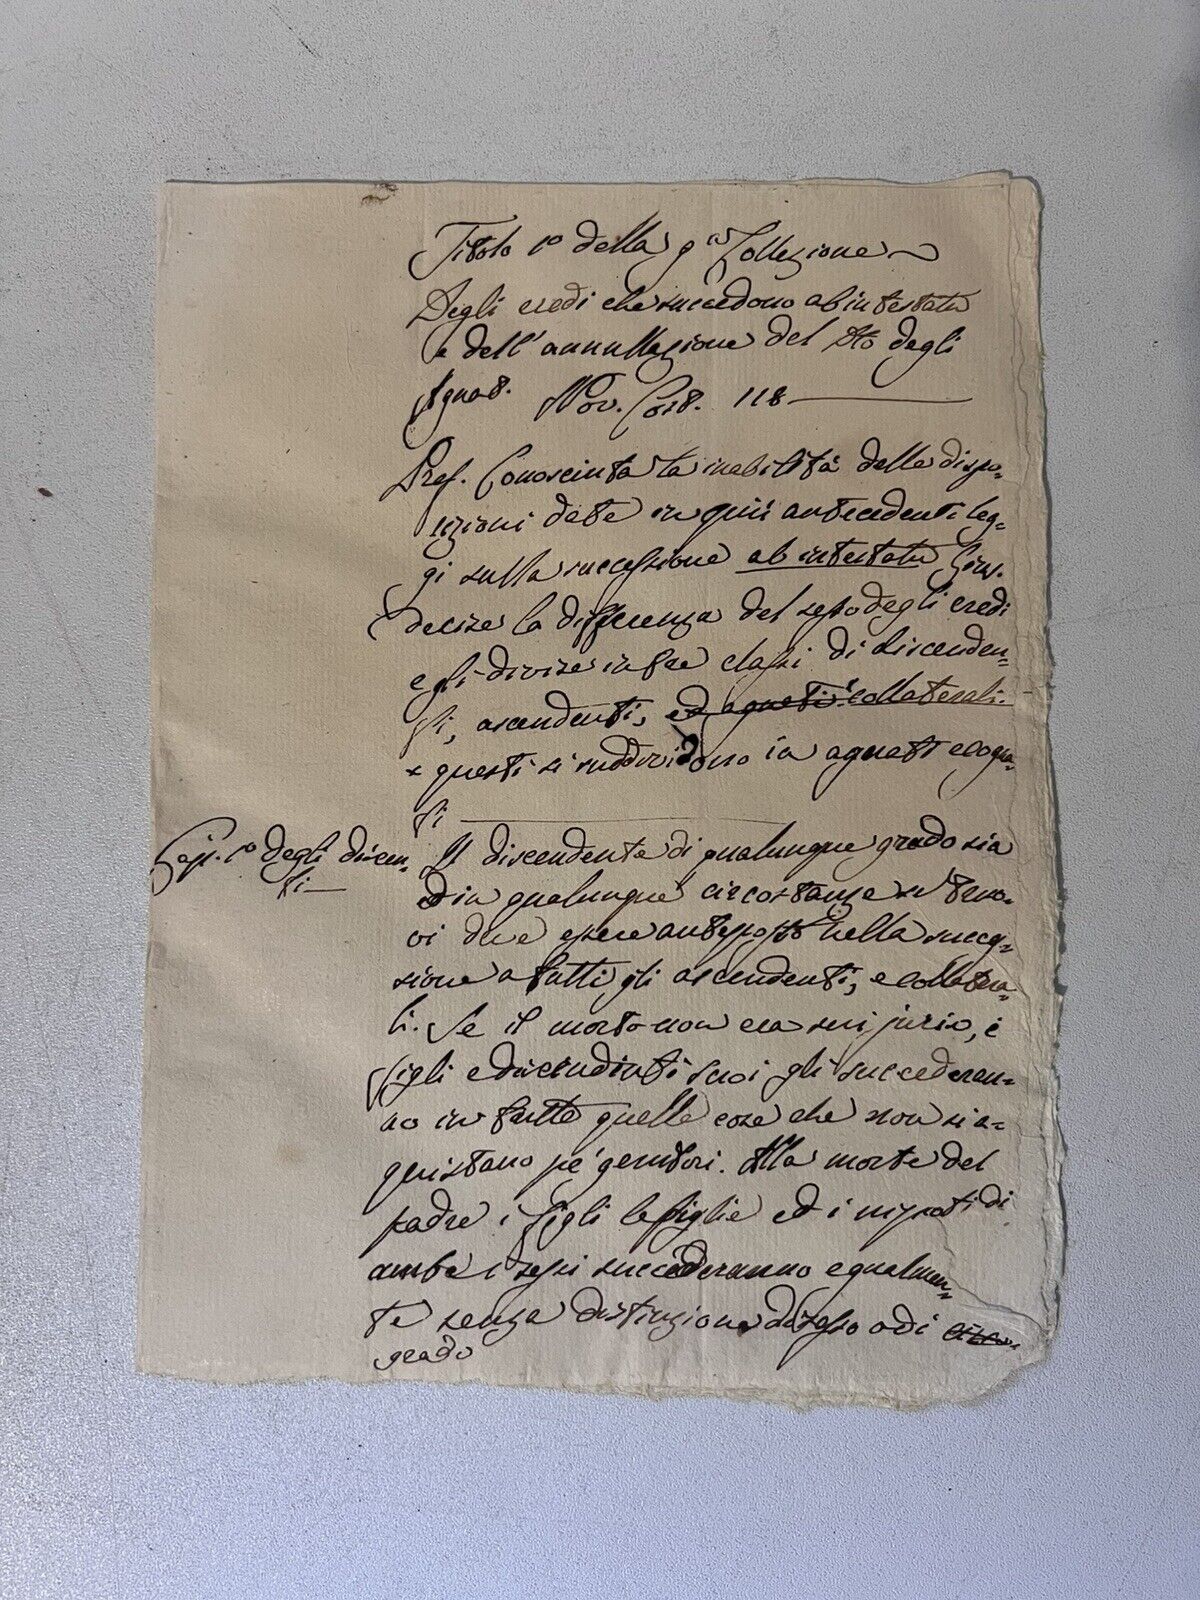 Titolo 1º della 9ª Collezione
Degli eredi che succedono ab intestato
e dell'annullazione del Dto degli
Agnat. Nov. Cost. 118
Pref. Conosciuta la inabilità delle dispo-
sizioni date in qui antecedenti leg-
gi sulla successione ab intestato Gius.
decise la differenza del sesso degli eredi
e gli divise in tre classi di discenden-
ti, ascendenti, ed agnati collaterali.
questi si suddividono in agnati e cogna-
ti
Cap. 1º degli discen-
ti
Il discendente di qualunque grado sia
ed in qualunque circostanza si tro-
vi deve essere anteposto nella succes-
sione a tutti gli ascendenti, e collatera-
li. Se il morto non era sui juris, i
figli e discendenti suoi gli succederan-
no in tutte quelle cose che non si a-
quistano pe' genitori. Alla morte del
padre i figli le figlie ed i nipoti di
ambe i sessi succederanno egualmen-
te senza distinzione di sesso o di
grado